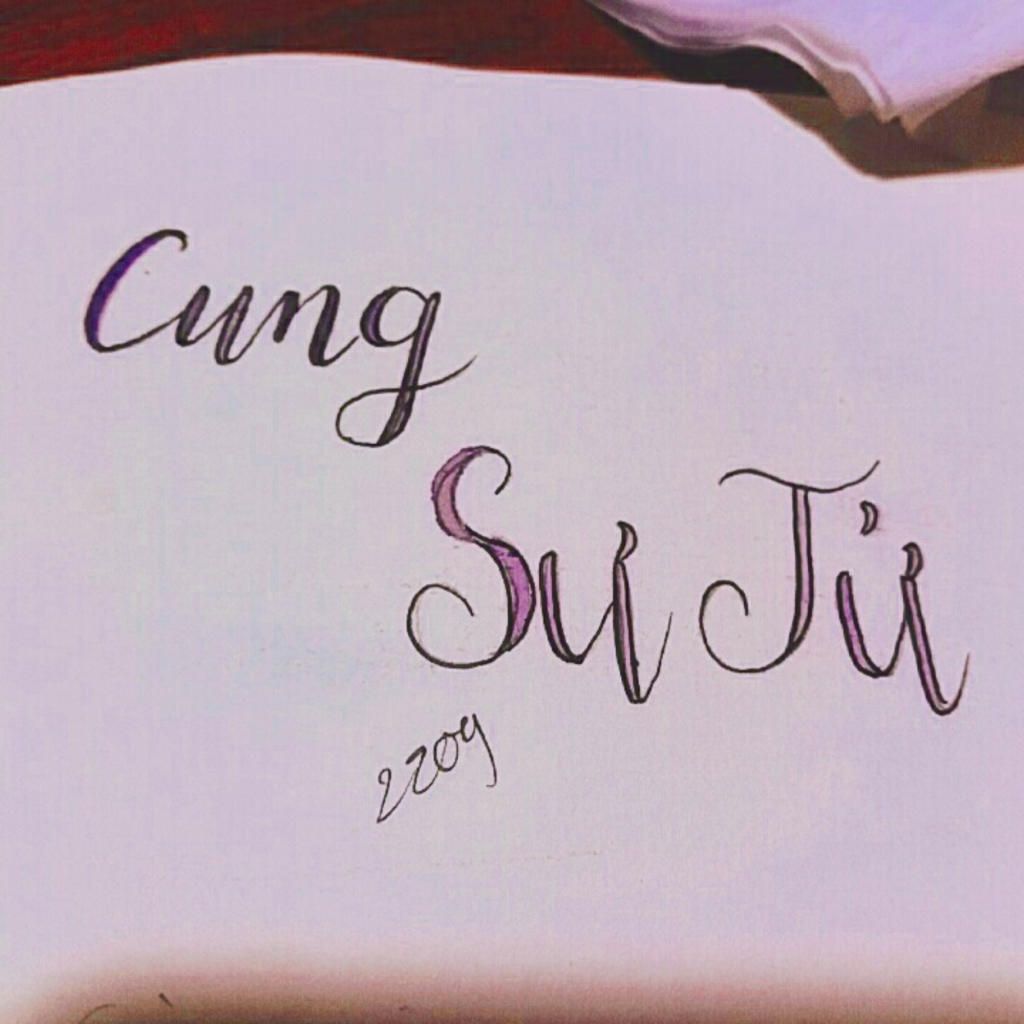 Cung
Sư Tử
2209